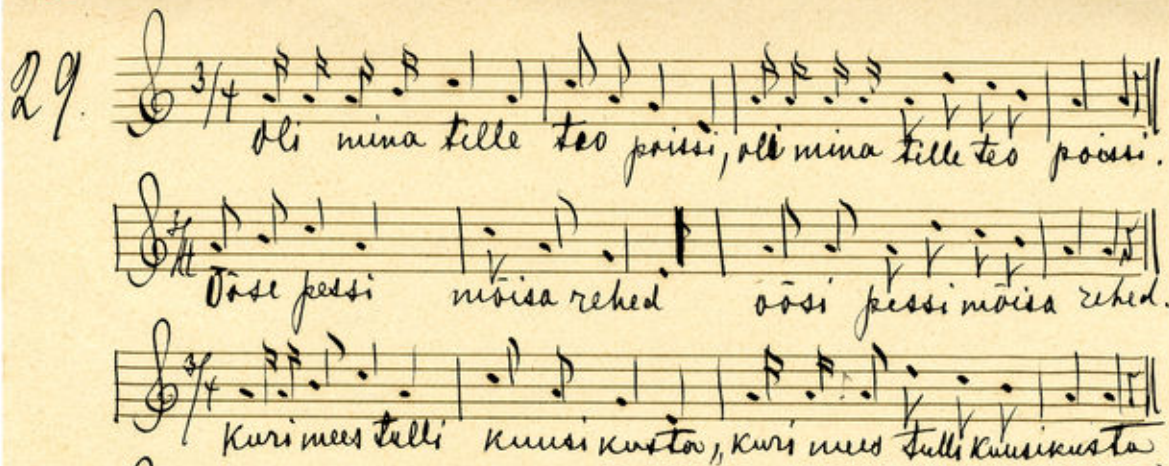 29. 3/4
Oli mina tille teo poissi, oli mina tille teo poissi.
Öose pessi mõisa rehed öösi pessi mõisa rehed.
3/4
Kuri mees tulli kuusikusta, kuri mees tulli kuusikusta